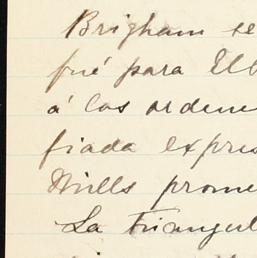 Brigham se
fué para Elb
á las ordene
fiada expres
Mills prome
La Triangul